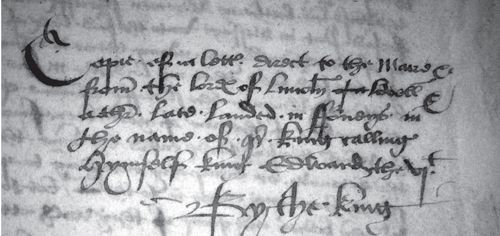 Copie of a lettr direct to the Maire &c.
from the lordes of Lincoln & lovell &
othr late landed in ffurneys in
the name of yr king calling
hymself king Edward the vjt
By the king